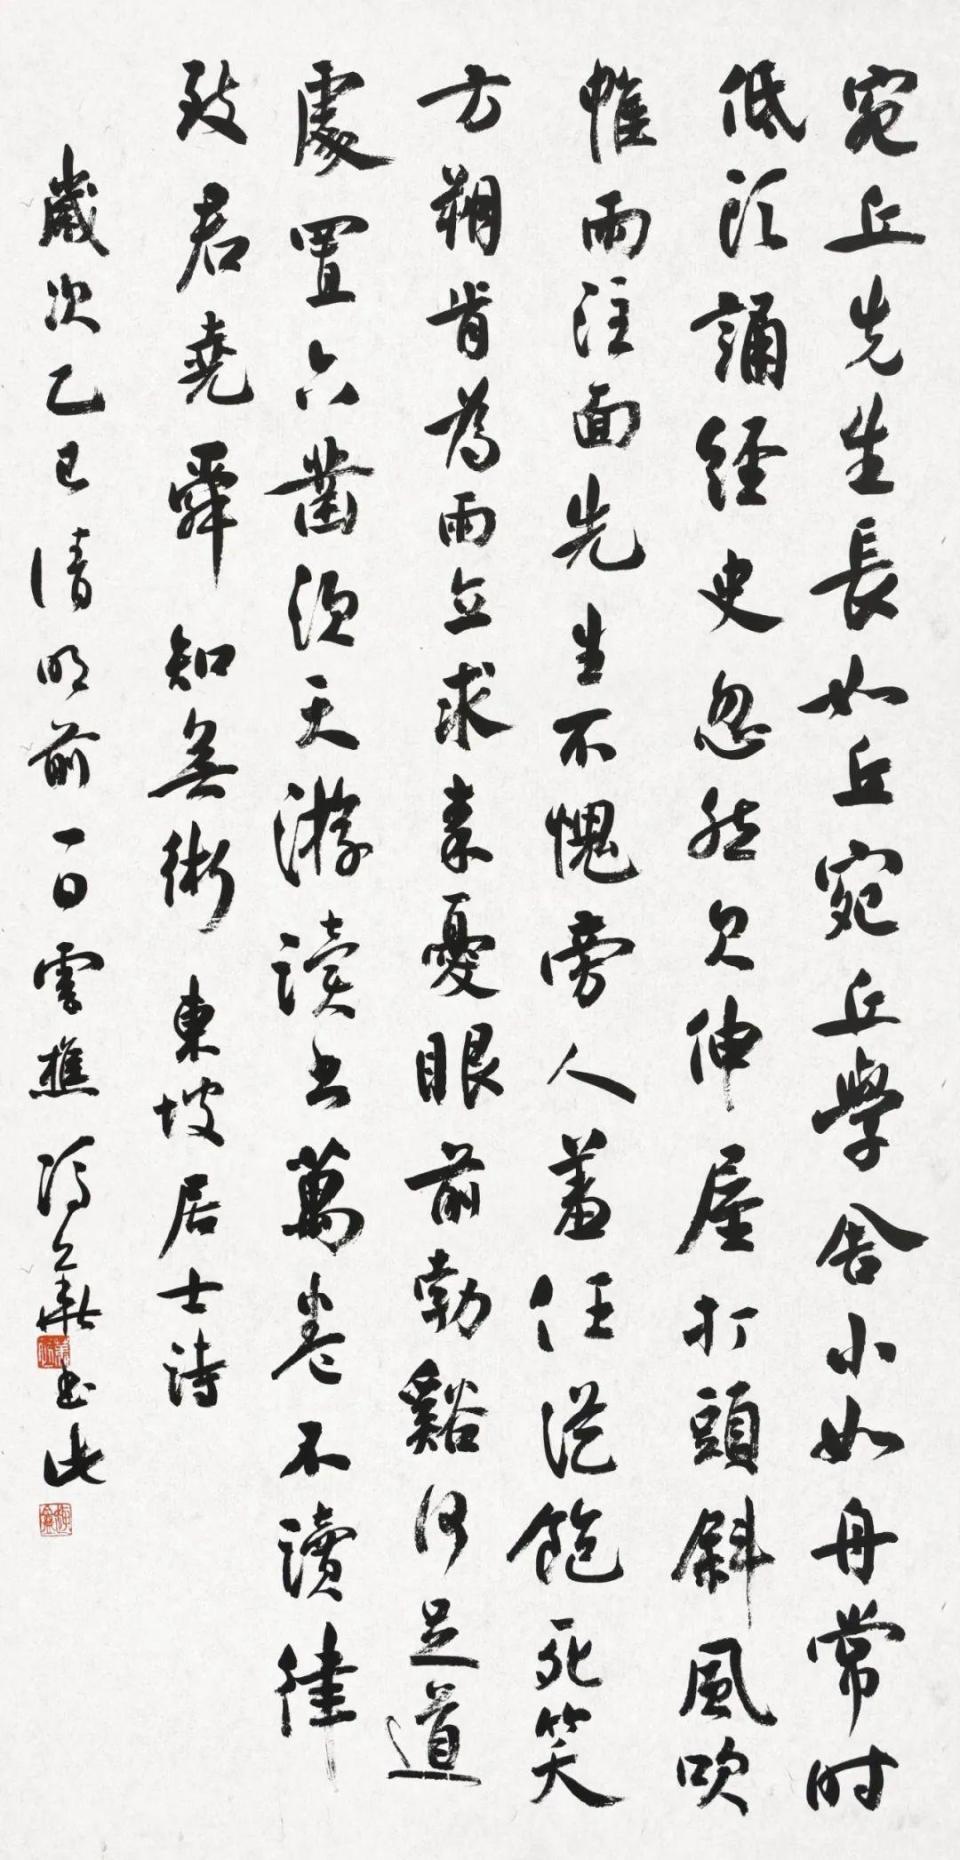 宛丘先生長如丘宛丘學舍小如舟常时
低头誦經史忽然欠伸屋打頭斜風吹
帷雨注面先生不愧旁人羞任從飽死笑
方朔肯為雨立求秦憂眼前勃谿何足道
處置六鑿須天游读书萬卷不讀律
致君堯舜知無術 東坡居士詩
歲次乙巳清明前一日雲樵 馮书此